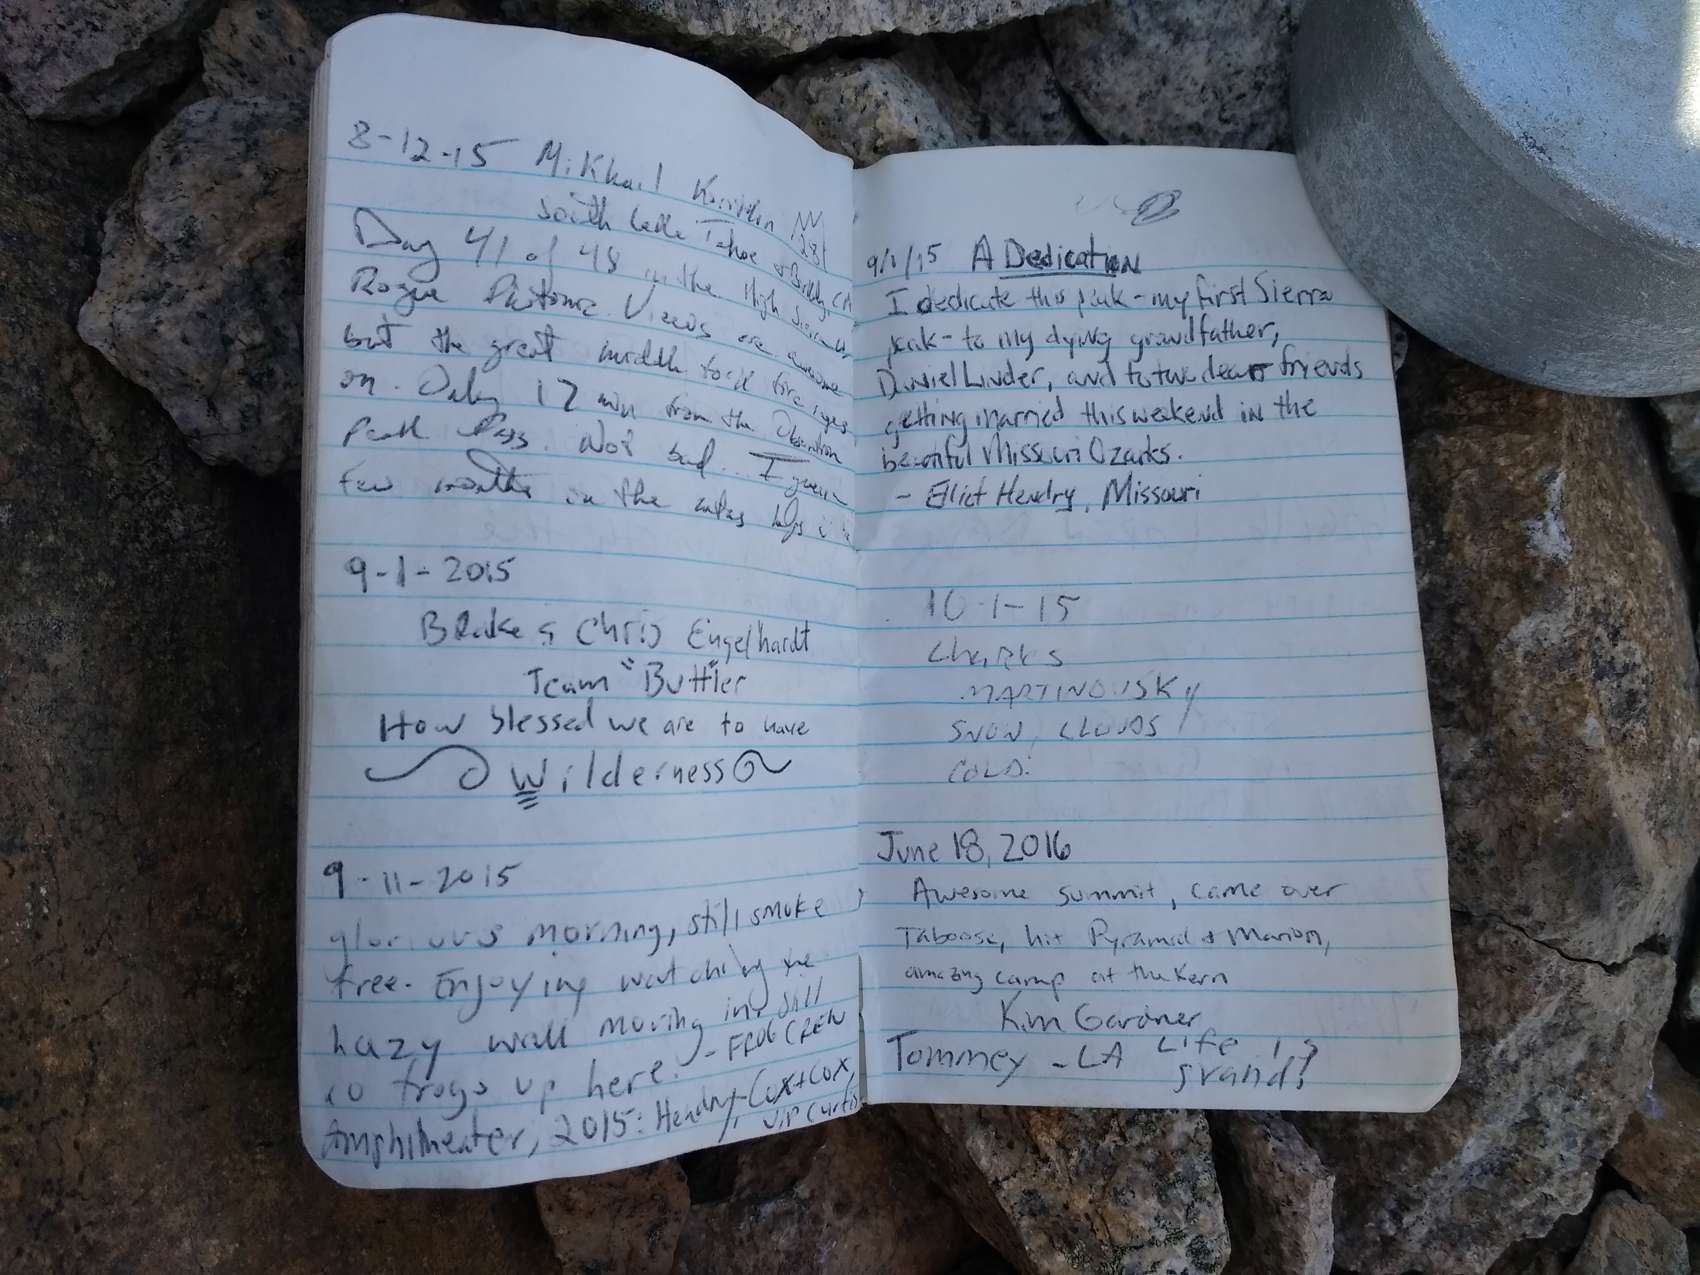 8-12-15 Mikhail
South Lake Tahoe
Day 41 of 48 in the High Sierra
Rogue Views are awesome
but the great middle fork fire rages
on. Only 12 min from the
Peak Pass. Not bad. I guess
few months in the helps
9-1-2015
Blake & Chris Engelhardt
Team "Buttler
How blessed we are to have
Wilderness
9-11-2015
glorious morning, still smoke
free. Enjoying watching the
hazy wall moving in, still
no frogs up here. - FROG CREW
Amphitheater, 2015: Hendry, Cox + Cox,
Curtis
9/1/15 A Dedication
I dedicate this peak - my first Sierra
peak - to my dying grandfather,
Daniel Linder, and to two dear friends
getting married this weekend in the
beautiful Missouri Ozarks.
- Eliot Hendry, Missouri
10-1-15
CHARLES
MARTINOVSKY
SNOW, CLOUDS
COLD.
June 18, 2016
Awesome summit, came over
Taboose, hit Pyramid & Marion,
amazing camp at the Kern
Kim Gardner
Tommey - LA Life is
grand!